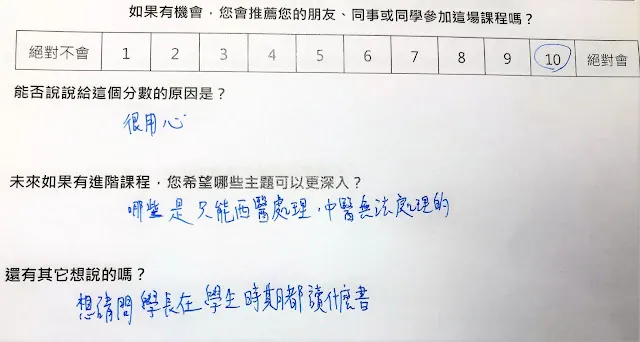 如果有機會，您會推薦您的朋友、同事或同學參加這場課程嗎？
絕對不會 1 2 3 4 5 6 7 8 9 10 絕對會
能否說說給這個分數的原因是？
很用心
未來如果有進階課程，您希望哪些主題可以更深入？
哪些是只能西醫處理，中醫無法處理的
還有其它想說的嗎？
想請問學長在學生時期都讀什麼書